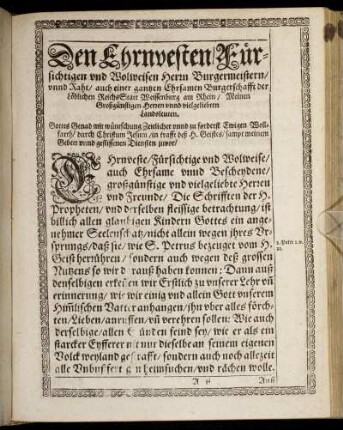 Den Ehrnvesten Für-
sichtigen vnd Wolweisen Herrn Burgermeistern/
vnnd Raht/ auch einer gantzen Ehrsamen Burgerschafft der
Löblichen Reichs Statt Weissenburg am Rhein/ Meinen
Großgünstigen Herren vnnd vielgeliebten
Landsleuten.
Gottes Genad mit wünschung Zeitlicher vnnd zu forderst Ewigen Woll-
farth/ durch Christum Jesum/ in krafft deß H. Geistes/ sampt meinem
Gebett vnnd geflissenen Diensten zuvor/
Ehrnveste/ Fürsichtige vnd Wolweise/
auch Ehrsame vnnd Bescheydene/
großgünstige vnd vielgeliebte Herren
vnd Freunde/ Die Schrifften der H.
Propheten/ vnd derselben fleissige betrachtung/ ist
billich allen glaubigen Kindern Gottes ein ange-
nehmer Seelenschatz/ nicht allein wegen jhres Vr-
sprungs/ daß sie/ wie S. Petrus bezeuget vom H.
Geist herrühren/ sondern auch wegen deß grossen
Nutzens so wir darauß haben können: Dann auß
denselbigen erkennen wir Erstlich zu vnserer Lehr vñ
erinnerung/ wie wir einig vnd allein Gott vnserem
Him̃lischen Vatter anhangen/ jhn vber alles förch-
ten/ Lieben/ anruffen/ vñ verehren sollen: Wie auch
derselbige/ allen Sünden feind sey/ wie er als ein
starcker Eyfferer nit nur dieselbe an seinem eigenen
Volck weyland gestrafft/ sondern auch noch allezeit
alle Vnbußfertigen heimsuchen/ vnd rächen wolle.
2. Petri 1. v.
21.
A ij
Auß